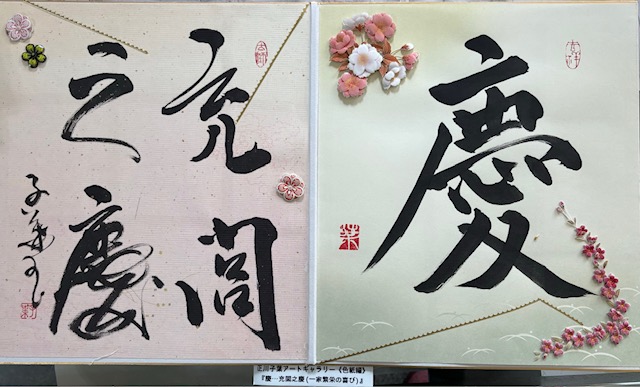 慶
葉
充閭
之慶
子葉
川子葉アートギャラリー《色紙編》
『慶…充閭之慶(一家繁栄の喜び)』